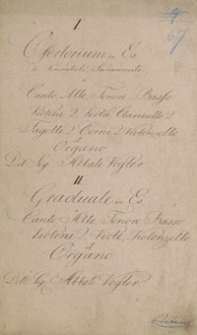 I
67
Offertorium in Es
Canto, Alto, Tenore Basso
Violini 2, Viola Clarinetti 2
Fagotti 2 Corni 2 Violonzello
et
Organo
Del Sig. Abbate Vogler
II
Graduale in Es
Canto Alto Tenore Basso
Violini 2, Viola, Violonzello
et
Organo
Del Sig. Abbate Vogler